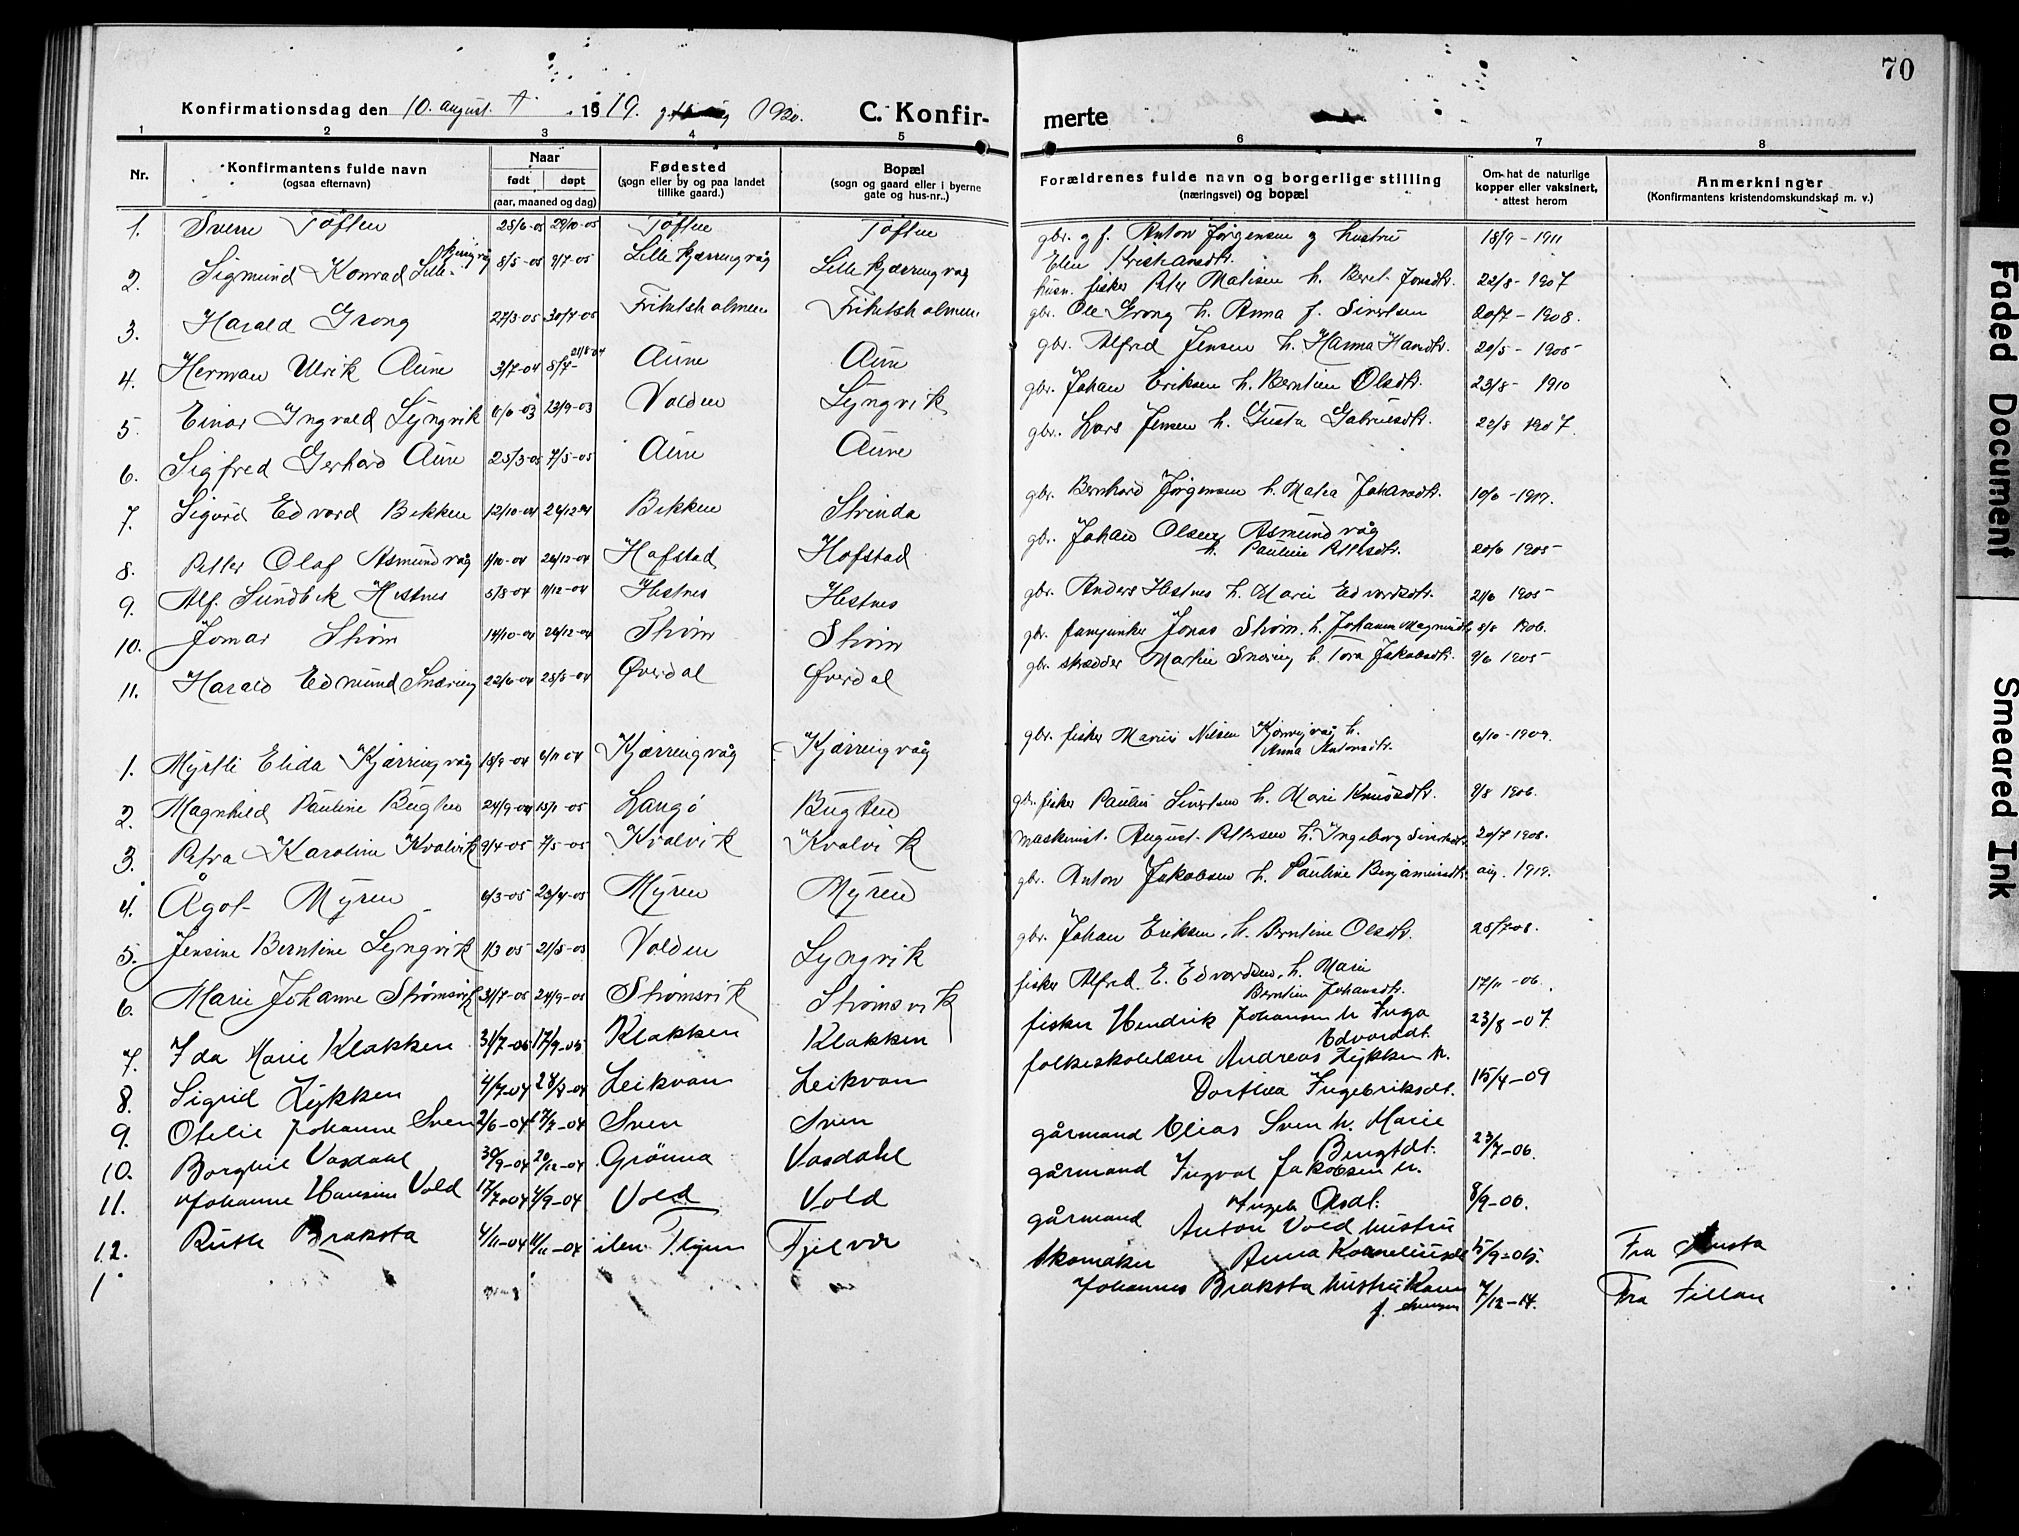 70
Konfirmationsdag den 10. august. 1919. 1920. C. Konfir-
merte
1 2 3 4 5
6 7 8
Nr. Konfirmantens fulde navn (ogsaa efternavn) Naar født døpt (aar, maaned og dag) Fødested (sogn eller by og paa landet tillike gaard.) Bopæl (sogn og gaard eller i byerne gate og hus-nr..)
Forældrenes fulde navn og borgerlige stilling (næringsvei) og bopæl Om hat de naturlige kopper eller vaksinert, attest herom Anmerkninger (Konfirmantens kristendomskundskap m. v.)
1. Sverre Toften 25/6-05 29/10-05 Toften Toften
gbr. g f. Anton Jørgensen g hustru 18/9-1911
Elen Kristiansdtr.
2. Sigmund Konrad Lille-kjerringvåg 8/5-05 9/7-05 Lille kjærringvåg Lille kjærringvåg
husm. fisker Peter Matisen h. Beret Jonsdtr. 22/8-1907
3. Harald Grong 27/3-05 30/7-05
gbr. Ole Grong h. Anna f. Sivertsen 20/7-1908.
4. Herman Ulrik Aune 3/7-04 21/8-04 Aune Aune
gbr. Alfred Jensen h. Hanna Hansdtr. 20/5-1905
5. Einar Ingvald Lyngvik 13/9-03 Volden Lyngvik
gbr. Johan Eriksen h. Berntine Olsdtr. 23/8-1910
6. Sigfred Gerhard Aune 25/3-05 7/5-05 Aune Aune
gbr. Lars Jensen h. Gusta Gabrielsdtr. 22/8 1907.
7. Sigurd Edvard Bekken 12/10-04 26/12-04 Bekken Strinda
gbr. Bernhard Jørgensen h. Matea Johansdtr.
8. Petter Olaf Asmundvåg 1/10-04 26/12-04 Hofstad Hofstad
gbr. Johan Olsen Asmundvåg
h. Pauline Pettersdtr. 20/6 1905
9. Alf. Sundbek Hestnes 5/8-04 11/12-04 Hestnes Hestnes
gbr. Anders Hestnes h. Marie Edvardsdtr. 21/6 1905
10. Jomar Strøm 14/10-04 26/12-04 Strøm Strøm
gbr. fanejunker Jonas Strøm h. Johanna Magnusdtr. 8/8 1906.
11. Harald Edmund Snæring 22/6-04 28/8-04 Øverdal Øverdal
gbr. skrædder Martin Snæring h. Tora Jakobsdtr. 9/6 1905
1. Myrtli Elida Kjærringvåg 13/9-04 6/11 04 Kjærringvåg Kjærringvåg
gbr. fisker Marius Nilsen h. Anna Antonsdtr. 6/10-1909.
2. Magnhild Pauline Bugten 24/9-04 15/1-05 Langø Bugten
gbr. fisker Paulus Sivertsen h. Marie Knudsdtr. 9/8 1906.
3. Petra Karoline Kvalvik 9/4-05 7/5-05 Kvalvik Kvalvik
maskinist. August Pettersen h. Ingeborg Sivertsdtr. 20/7 1908.
4. Ågot Myren 6/3-05 23/4-05 Myren Myren
gbr. Anton Jakobsen h. Pauline Benjaminsdtr. aug. 1919.
5. Jensine Berntine Lyngvik 1/3 05 21/5-05 Volden Lyngvik
gbr. Johan Eriksen, h. Berntine Olsdtr. 25/7-08.
6. Marie Johanne Strømsvik 31/7-05 24/9-05 Strømsvik Strømsvik
fisker Alfred E. Edvardsen, h. Marie
Berntine Johansdtr. 17/11-06.
7. Ida Marie Klakken 31/7-05 17/9-05 Klakken Klakken
fisker Hendrik Johansen h Inga
Edvardsdt. 23/8-07
8. Sigrid Lykken 4/7-04 28/8-04 Leikvan Leikvan
folkeskolelærer Andreas Lykken h.
Dorthea Ingebriksdt. 15/4-09
9. Otelie Johanne Sven 2/6-04 17/7-04 Sven Sven
gårmand Elias Sven h. Marie
Bengtdt. 23/7-06.
10. Borghil Vasdahl 30/9-04 26/12-04 Grønna Vasdahl
gårmand Ingval Jakobsen h.
Olsdt. 8/9-06.
11. Johanne Hansine Vold 17/7-04 4/9-04 Vold Vold
gårmand Anton Vold hustru
Anna Korneliusdt 15/9-05. Fra
12. Ruth Braksta 4/11-04 Fjelvær
Skomaker
Johannes Braksta hustru
7/12-14. Fra Fillan
1
Faded Document
Smeared Ink